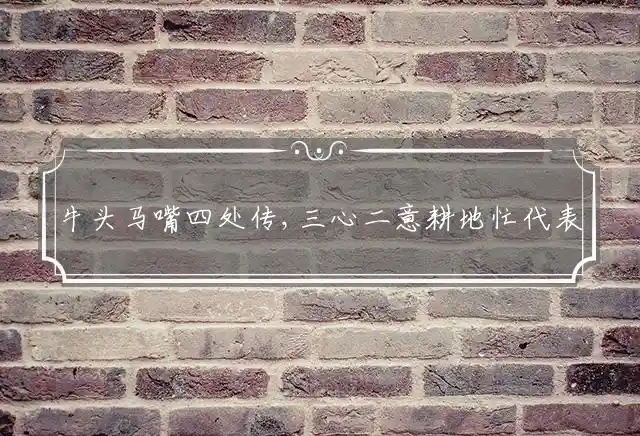 牛头马嘴四处传,三心二意耕地忙代表